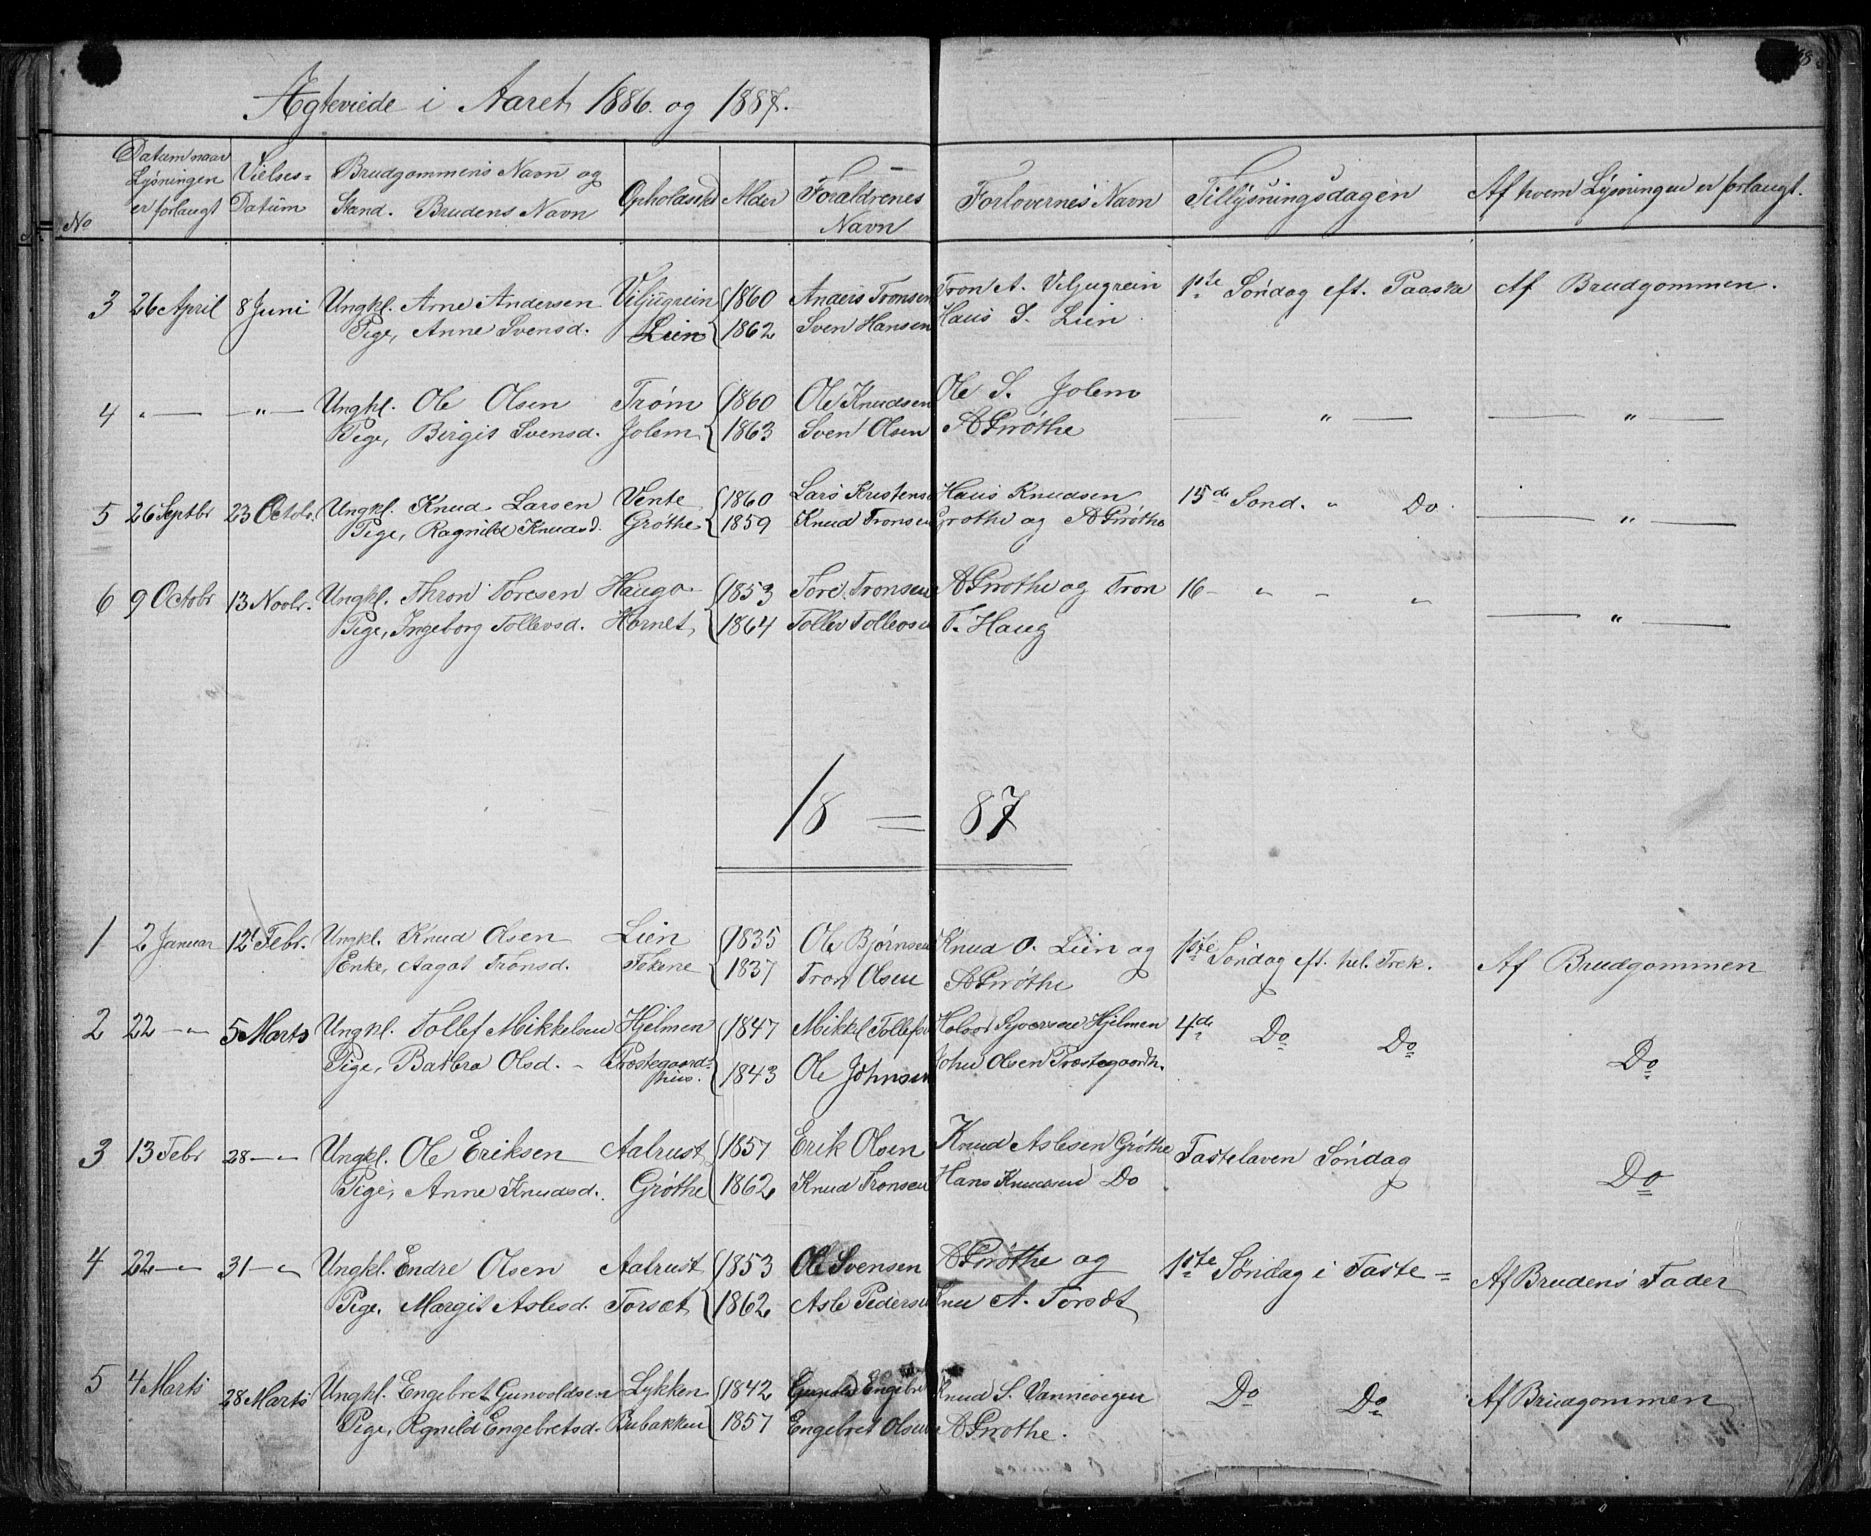 Ægteviede i Aaret 1886. og 1887.
No | Datum naar Lysningen er forlangt | Vielses= Datum | Brudgommens Navn og Stand. Brudens Navn | Opholdssted | Alder | Forældrenes Navn | Forlovernes Navn | Tillysningsdagen | Af hvem Lysningen er forlangt.
3 | 26 April | 8 Juni | Ungkl. Arne Andersen | Viljugrein | 1860 | Anders Tronsen | Tron A. Viljugrein | 1ste Søndag eft. Paaske | Af Brudgommen.
Pige, Anne Svensd. | Lien | 1862 | Sven Hansen | Hans S. Lien
4 | " | " | Ungkl. Ole Olsen | Trøm | 1860 | Ole Knudsen | Ole S. Jolem | " | "
Pige, Birgit Svensd. | Jolem | 1863 | Sven Olsen | A Grøthe
5 | 26 Septbr | 23 Octobr. | Ungkl. Knud Larsen | Vente | 1860 | Lars Kristens | Hans Knudsen | 15de Sønd. " Do. | "
Pige, Ragnild Knudsd. | Grøthe | 1859 | Knud Tronsen | Grøthe og A Grøthe
6 | 9 Octobr | 13 Novbr. | Ungkl. Thron Toresen | Haugo | 1853 | Tore Tronsen | A Grøthe og Tron | 16 - " - " | "
Pige, Ingeborg Tollevsd. | Hornet | 1864 | Tollev Tollevsen | T. Haug
18 = 87
1 | 2 Januar | 12 Febr. | Ungkl. Knud Olsen | Lien | 1835 | Ole Bjørnsen | Knud O. Lien og | 1ste Søndag eft. hel. Trek. | Af Brudgommen
Enke, Aagot Tronsd. | Tekene | 1837 | Tron Olsen | A Grøthe
2 | 22 - " - | 5 Marts | Ungkl. Tollef Mikkelsen | Hjelmen | 1847 | Mikkel Tollefs | Holvor Hjelmen | 4de Do Do | Do
Pige, Barbro Olsd. - | Præstegaards= hus. | 1843 | Ole Johnsen | John Olsen Præstegaardh.
3 | 13 Febr | 28 - " - | Ungkl. Ole Eriksen | Aalrust | 1857 | Erik Olsen | Knud Aslesen Grøthe | Fastelaven Søndag | Do
Pige, Anne Knudsd. | Grøthe | 1862 | Knud Tronsen | Hans Knudsen Do
4 | 22 - " - | 31 - " | Ungkl. Endre Olsen | Aalrust | 1853 | Ole Svensen | A Grøthe og | 1ste Søndag i Faste = | Af Brudens Fader
Pige, Margit Aslesd. | Torsæt | 1862 | Asle Pedersen | Knu A. Torsæt
5 | 4 Marts | 28 Marts | Ungkl. Engebret Gunvoldsen | Lykken | 1842 | Gunvold Engebret | Knud S. Vannevegen | Do Do | Af Brudgommen
Pige, Ragnild Engebretsd. | Bubakken | 1857 | Engebret Olsen | A Grøthe.